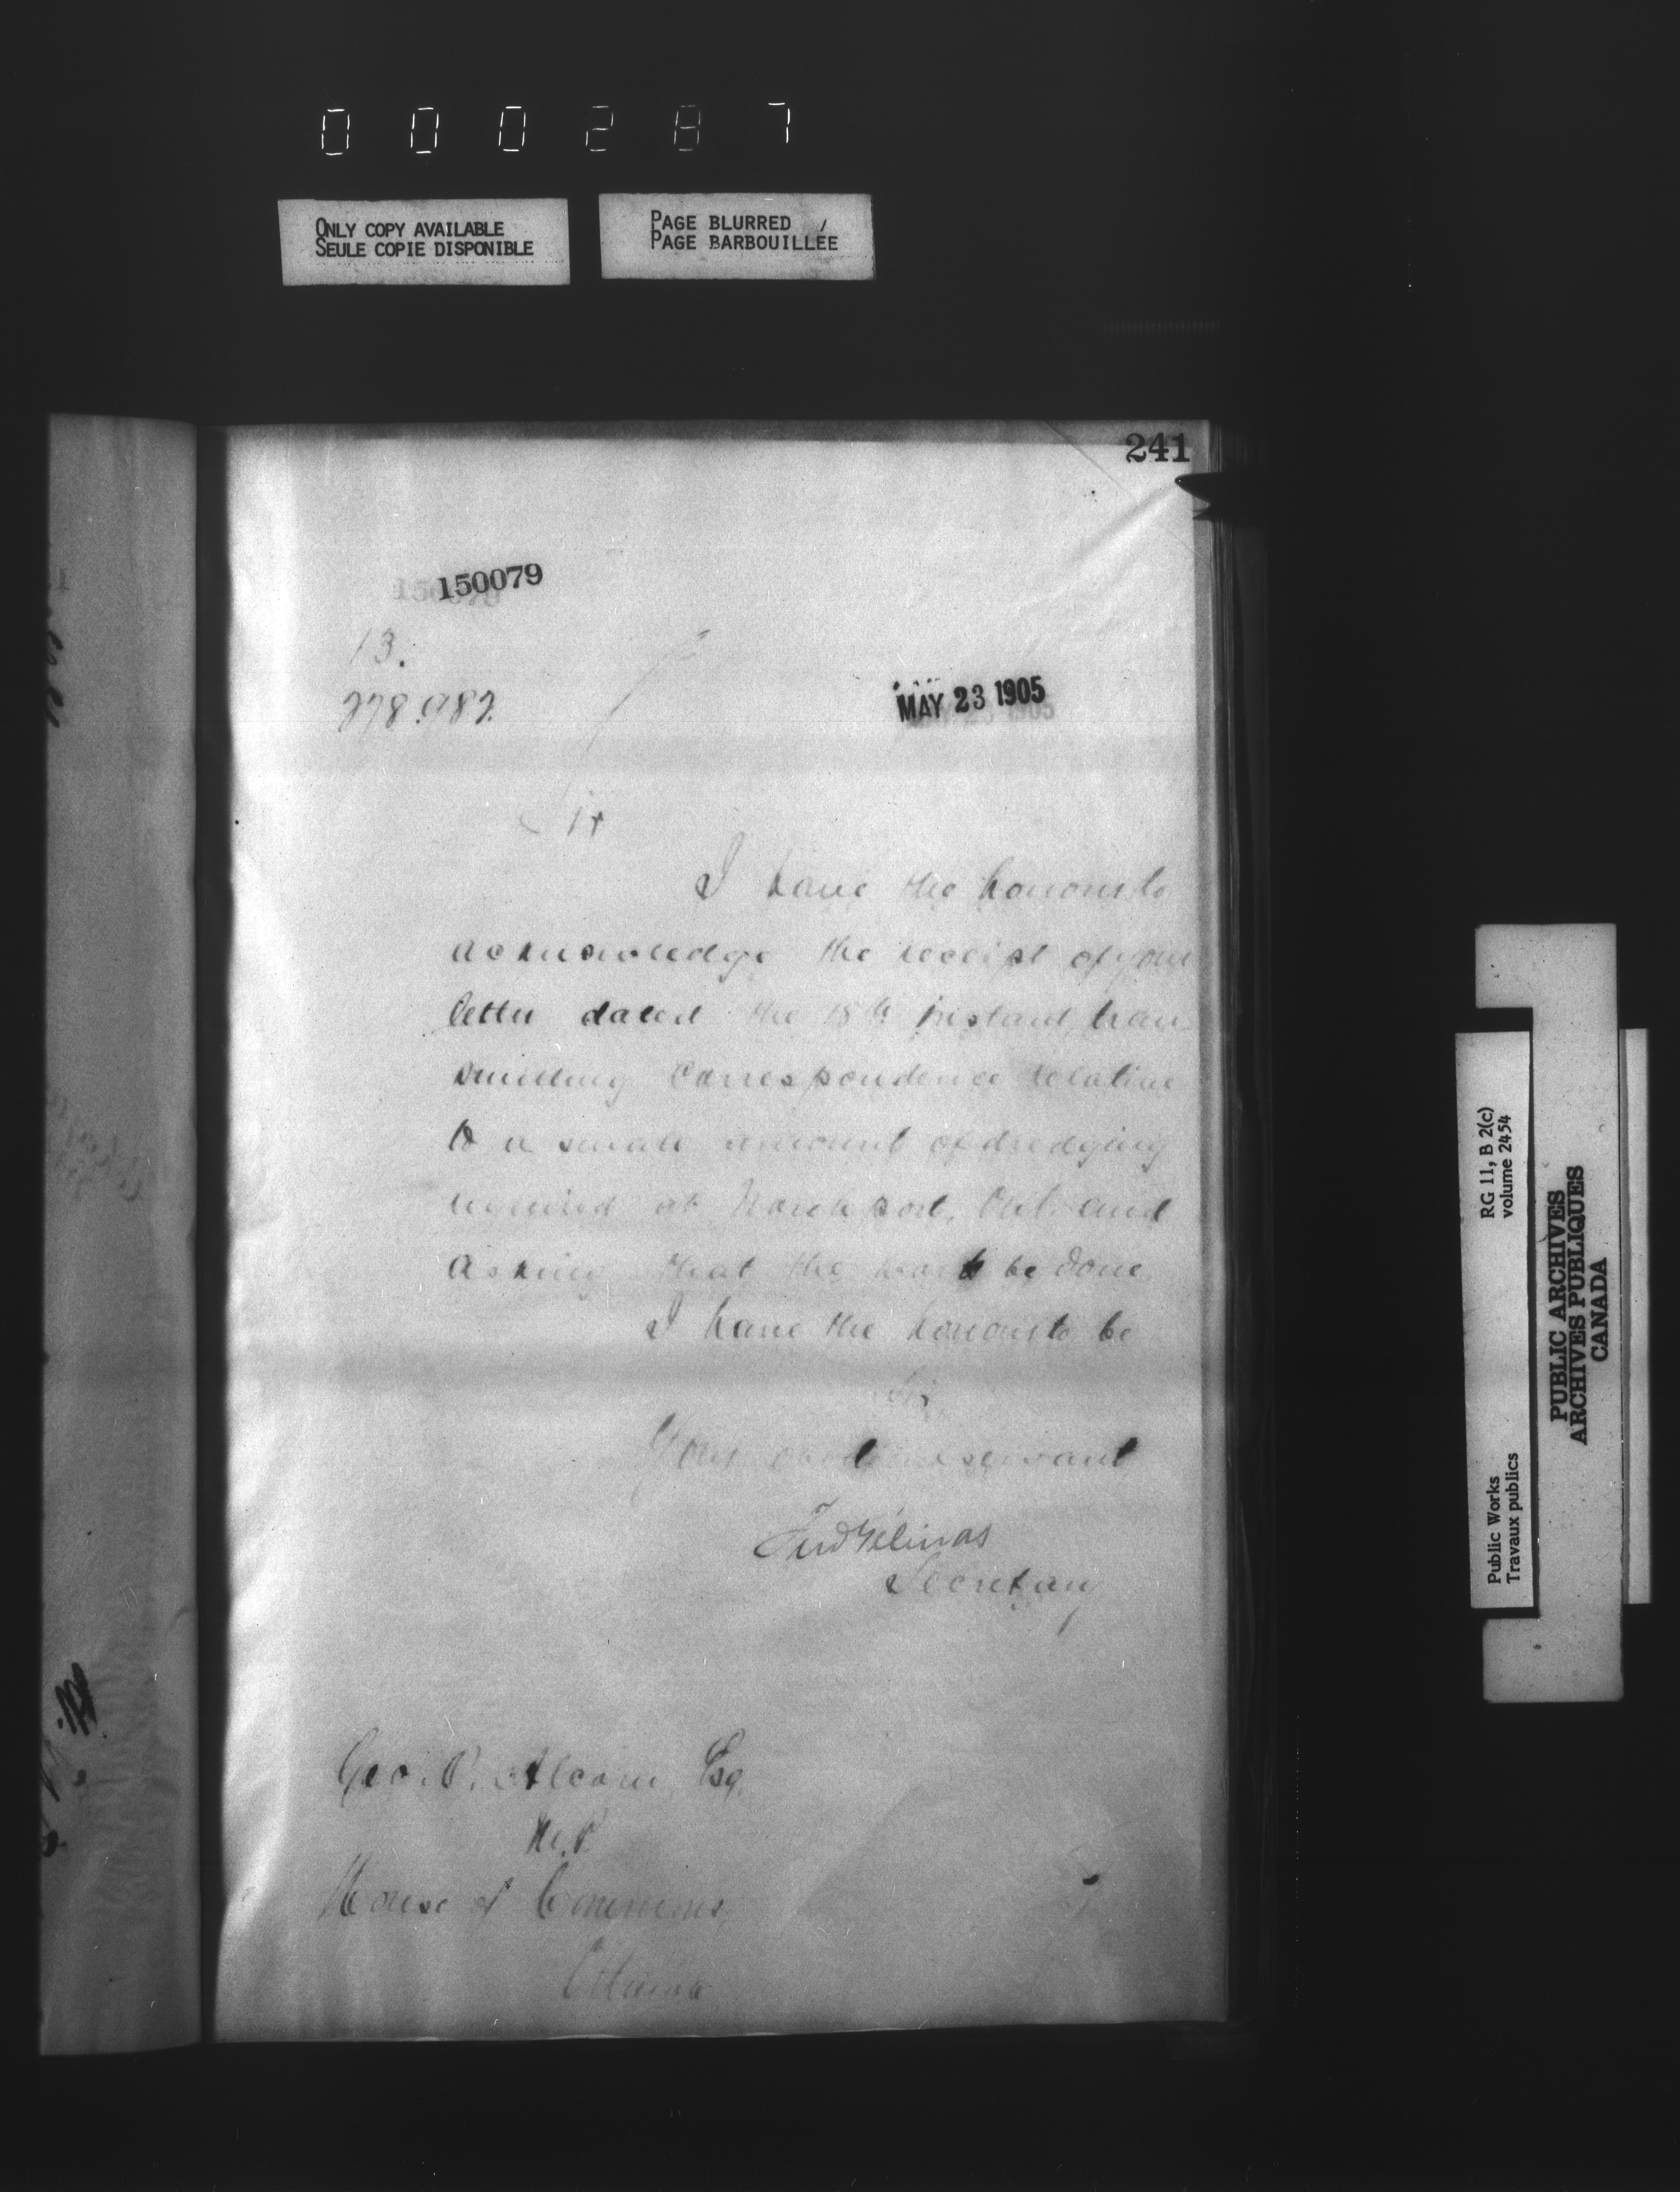 000287
ONLY COPY AVAILABLE
SEULE COPIE DISPONIBLE
PAGE BLURRED
PAGE BARBOUILLÉE
241
150079
13.
278.982.
MAY 23 1905
Sir
I have the honour to
acknowledge the receipt of your
letter dated the 18th instant, tran
smitting correspondence relative
to a small amount of dredging
required at Northport, Ont. and
asking that the work be done
I have the honour to be
Sir,
Your obedient servant
Fred Gélinas
Secretary
Geo. P. Alcorn Esq.
M.P.
House of Commons,
Ottawa
Public Works
Travaux publics
RG 11, B 2(c)
volume 2454
PUBLIC ARCHIVES
ARCHIVES PUBLIQUES
CANADA